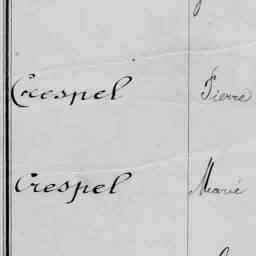 Crespel Pierre
Crespel Marie